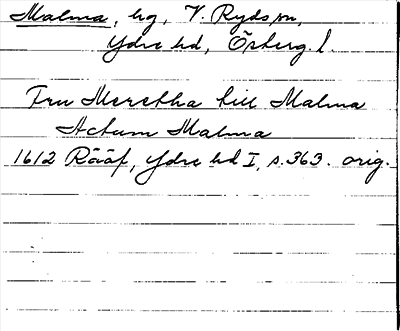 Malma, hg, V. Ryds sn,
Ydre hd, Östberg. l.
Fru Meretha till Malma
Actum Malma
1612 Rääf, Ydre hd I, s. 363. orig.